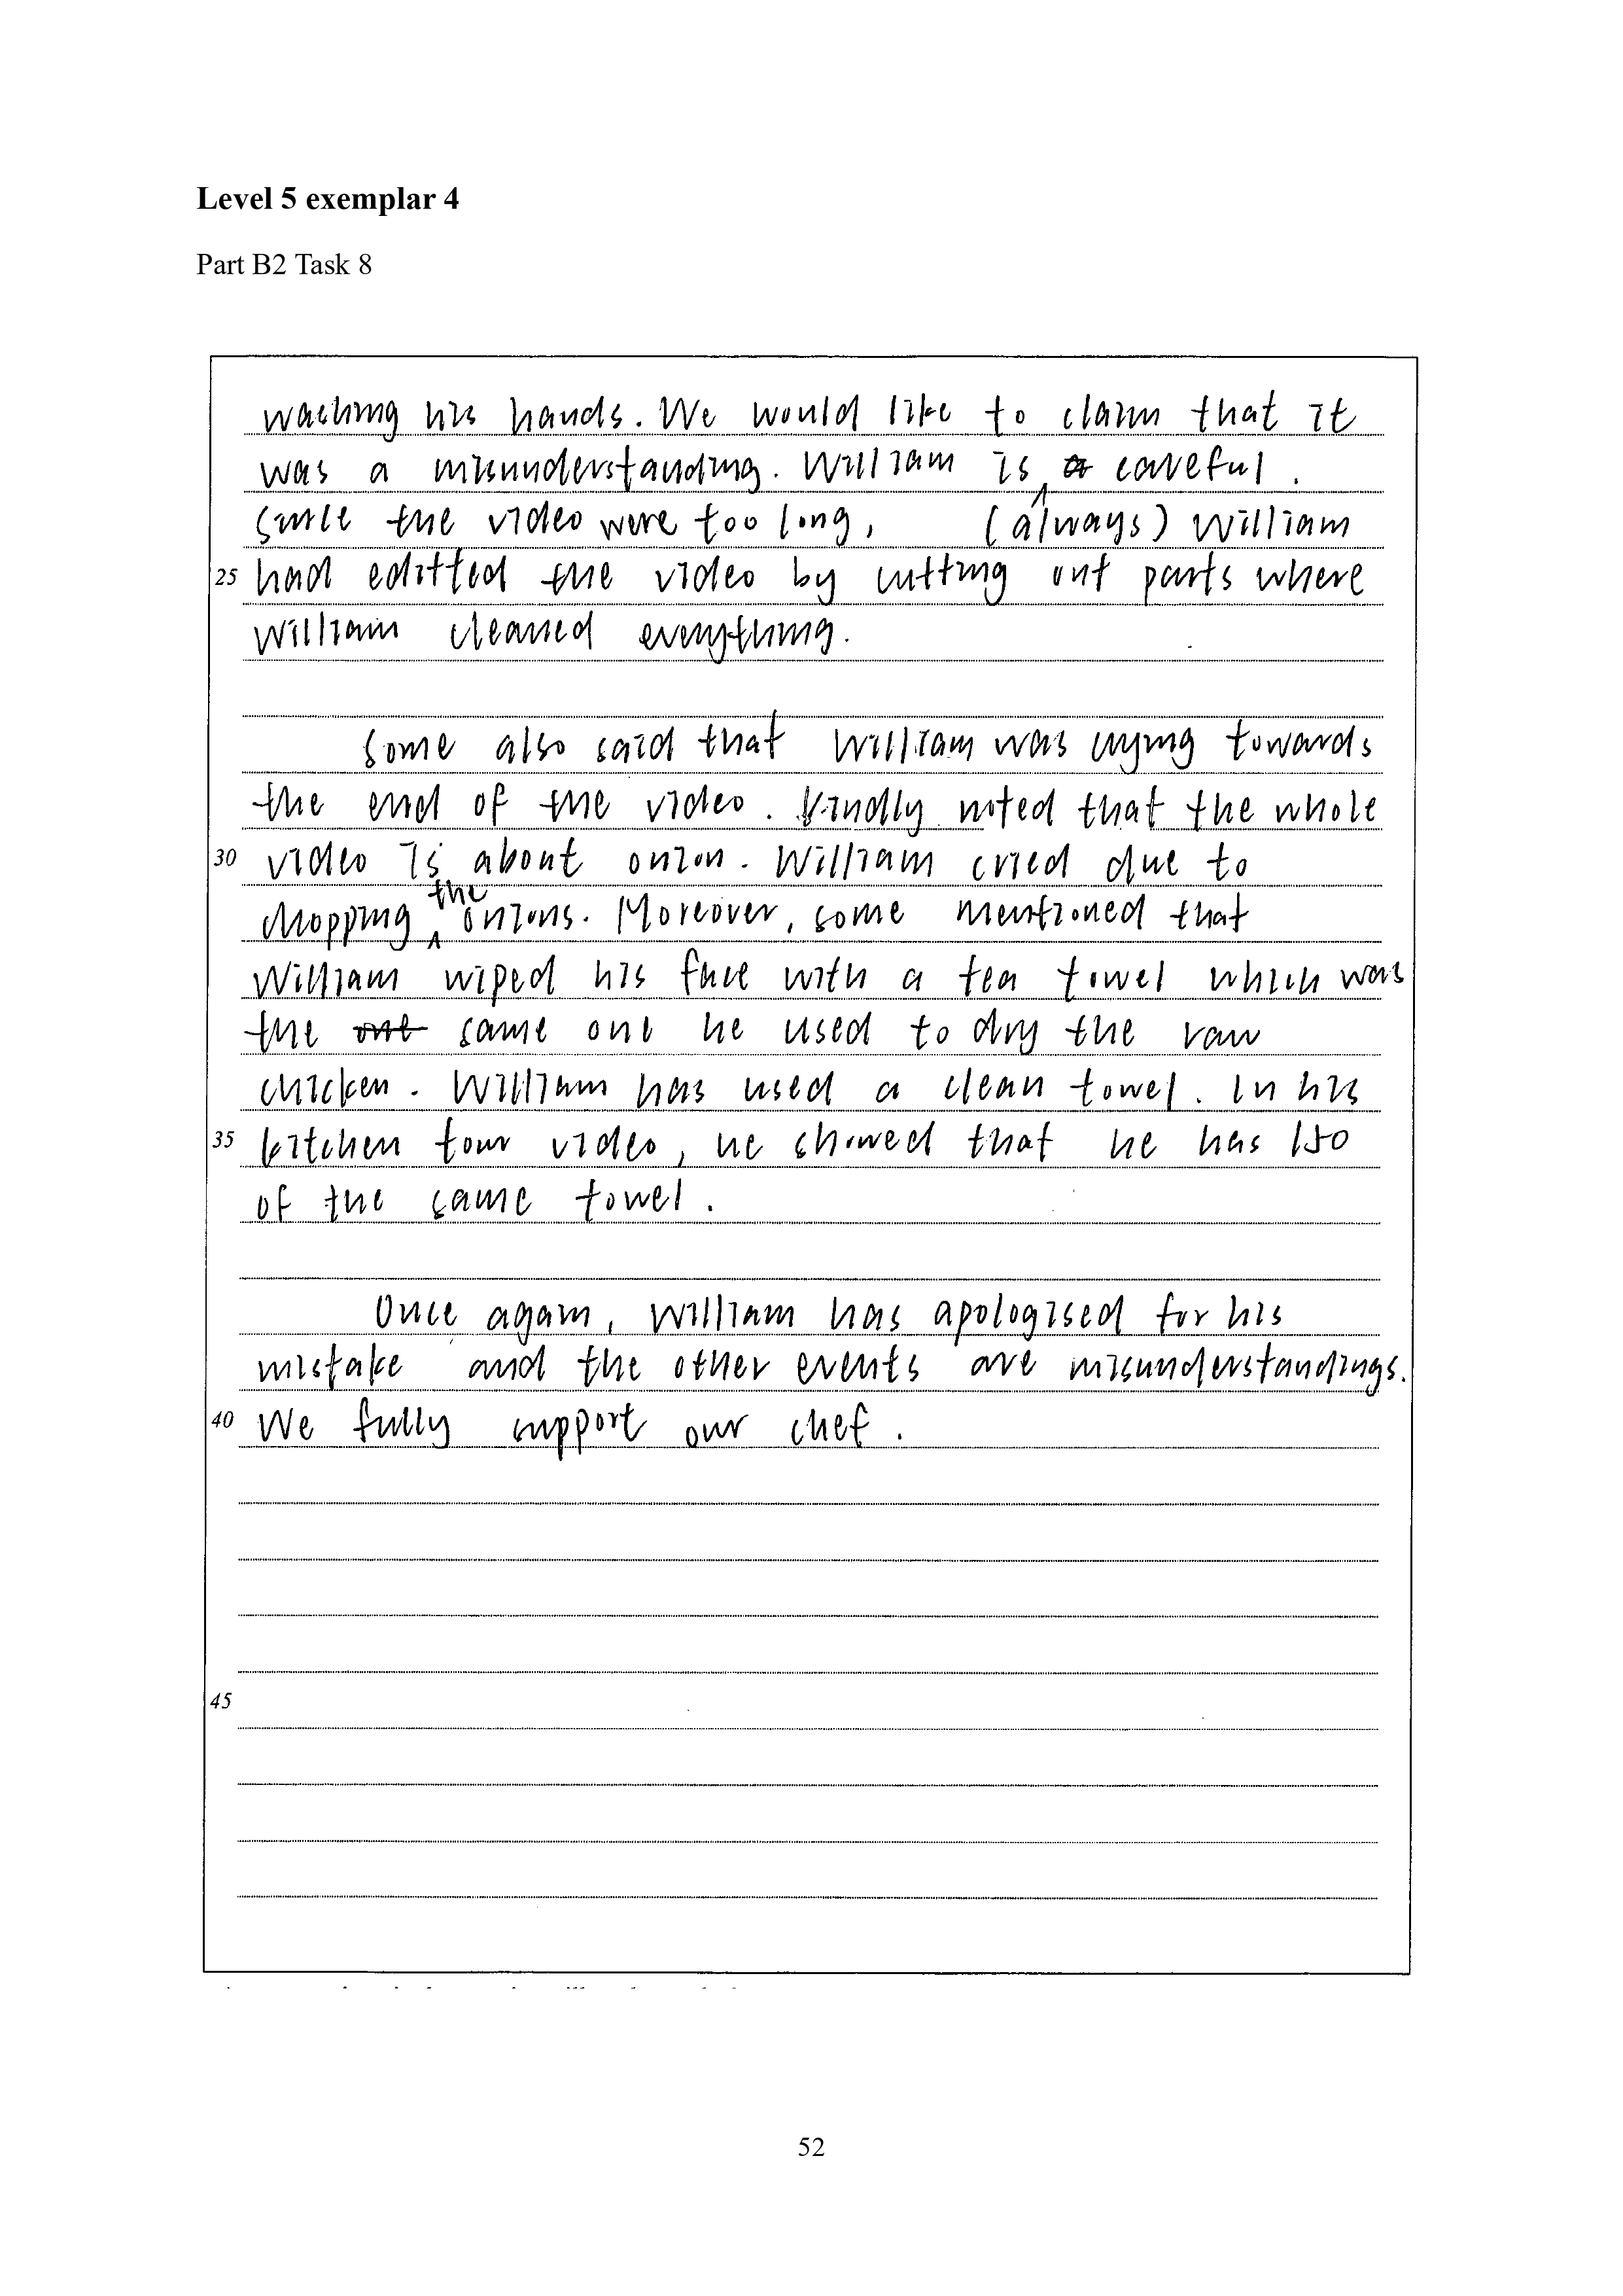 Level 5 exemplar 4
Part B2 Task 8
washing his hands. We would like to claim that it
was a misunderstanding. William is careful.
Since the video were too long, (always) William
25 had editted the video by cutting out parts where
William cleaned everything.
Some also said that William was crying towards
the end of the video. Kindly noted that the whole
30 video is about onion. William cried due to
chopping the onions. Moreover, some mentioned that
William wiped his face with a tea towel which was
the same one he used to dry the raw
chicken. William has used a clean towel. In his
35 kitchen tour video, he showed that he has 150
of the same towel.
Once again, William has apologised for his
mistake and the other events are misunderstandings.
40 We fully support our chef.
45
52